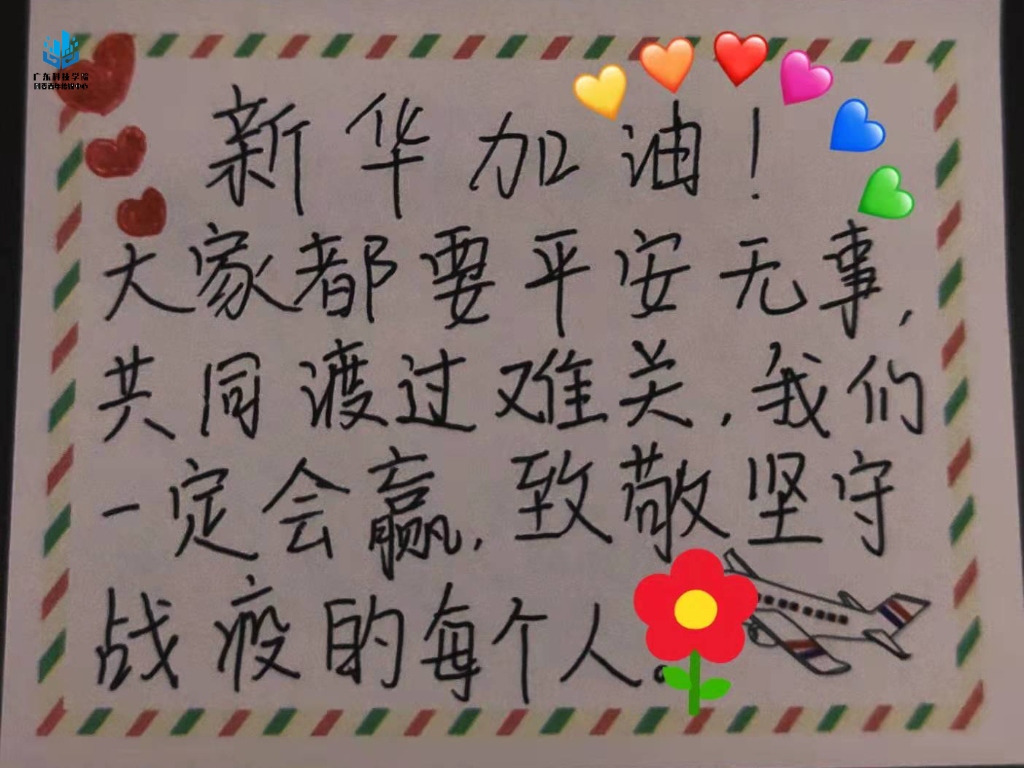 广东科技学院
新华加油！
大家都要平安无事，
共同渡过难关，我们
一定会赢，致敬坚守
战疫的每个人。